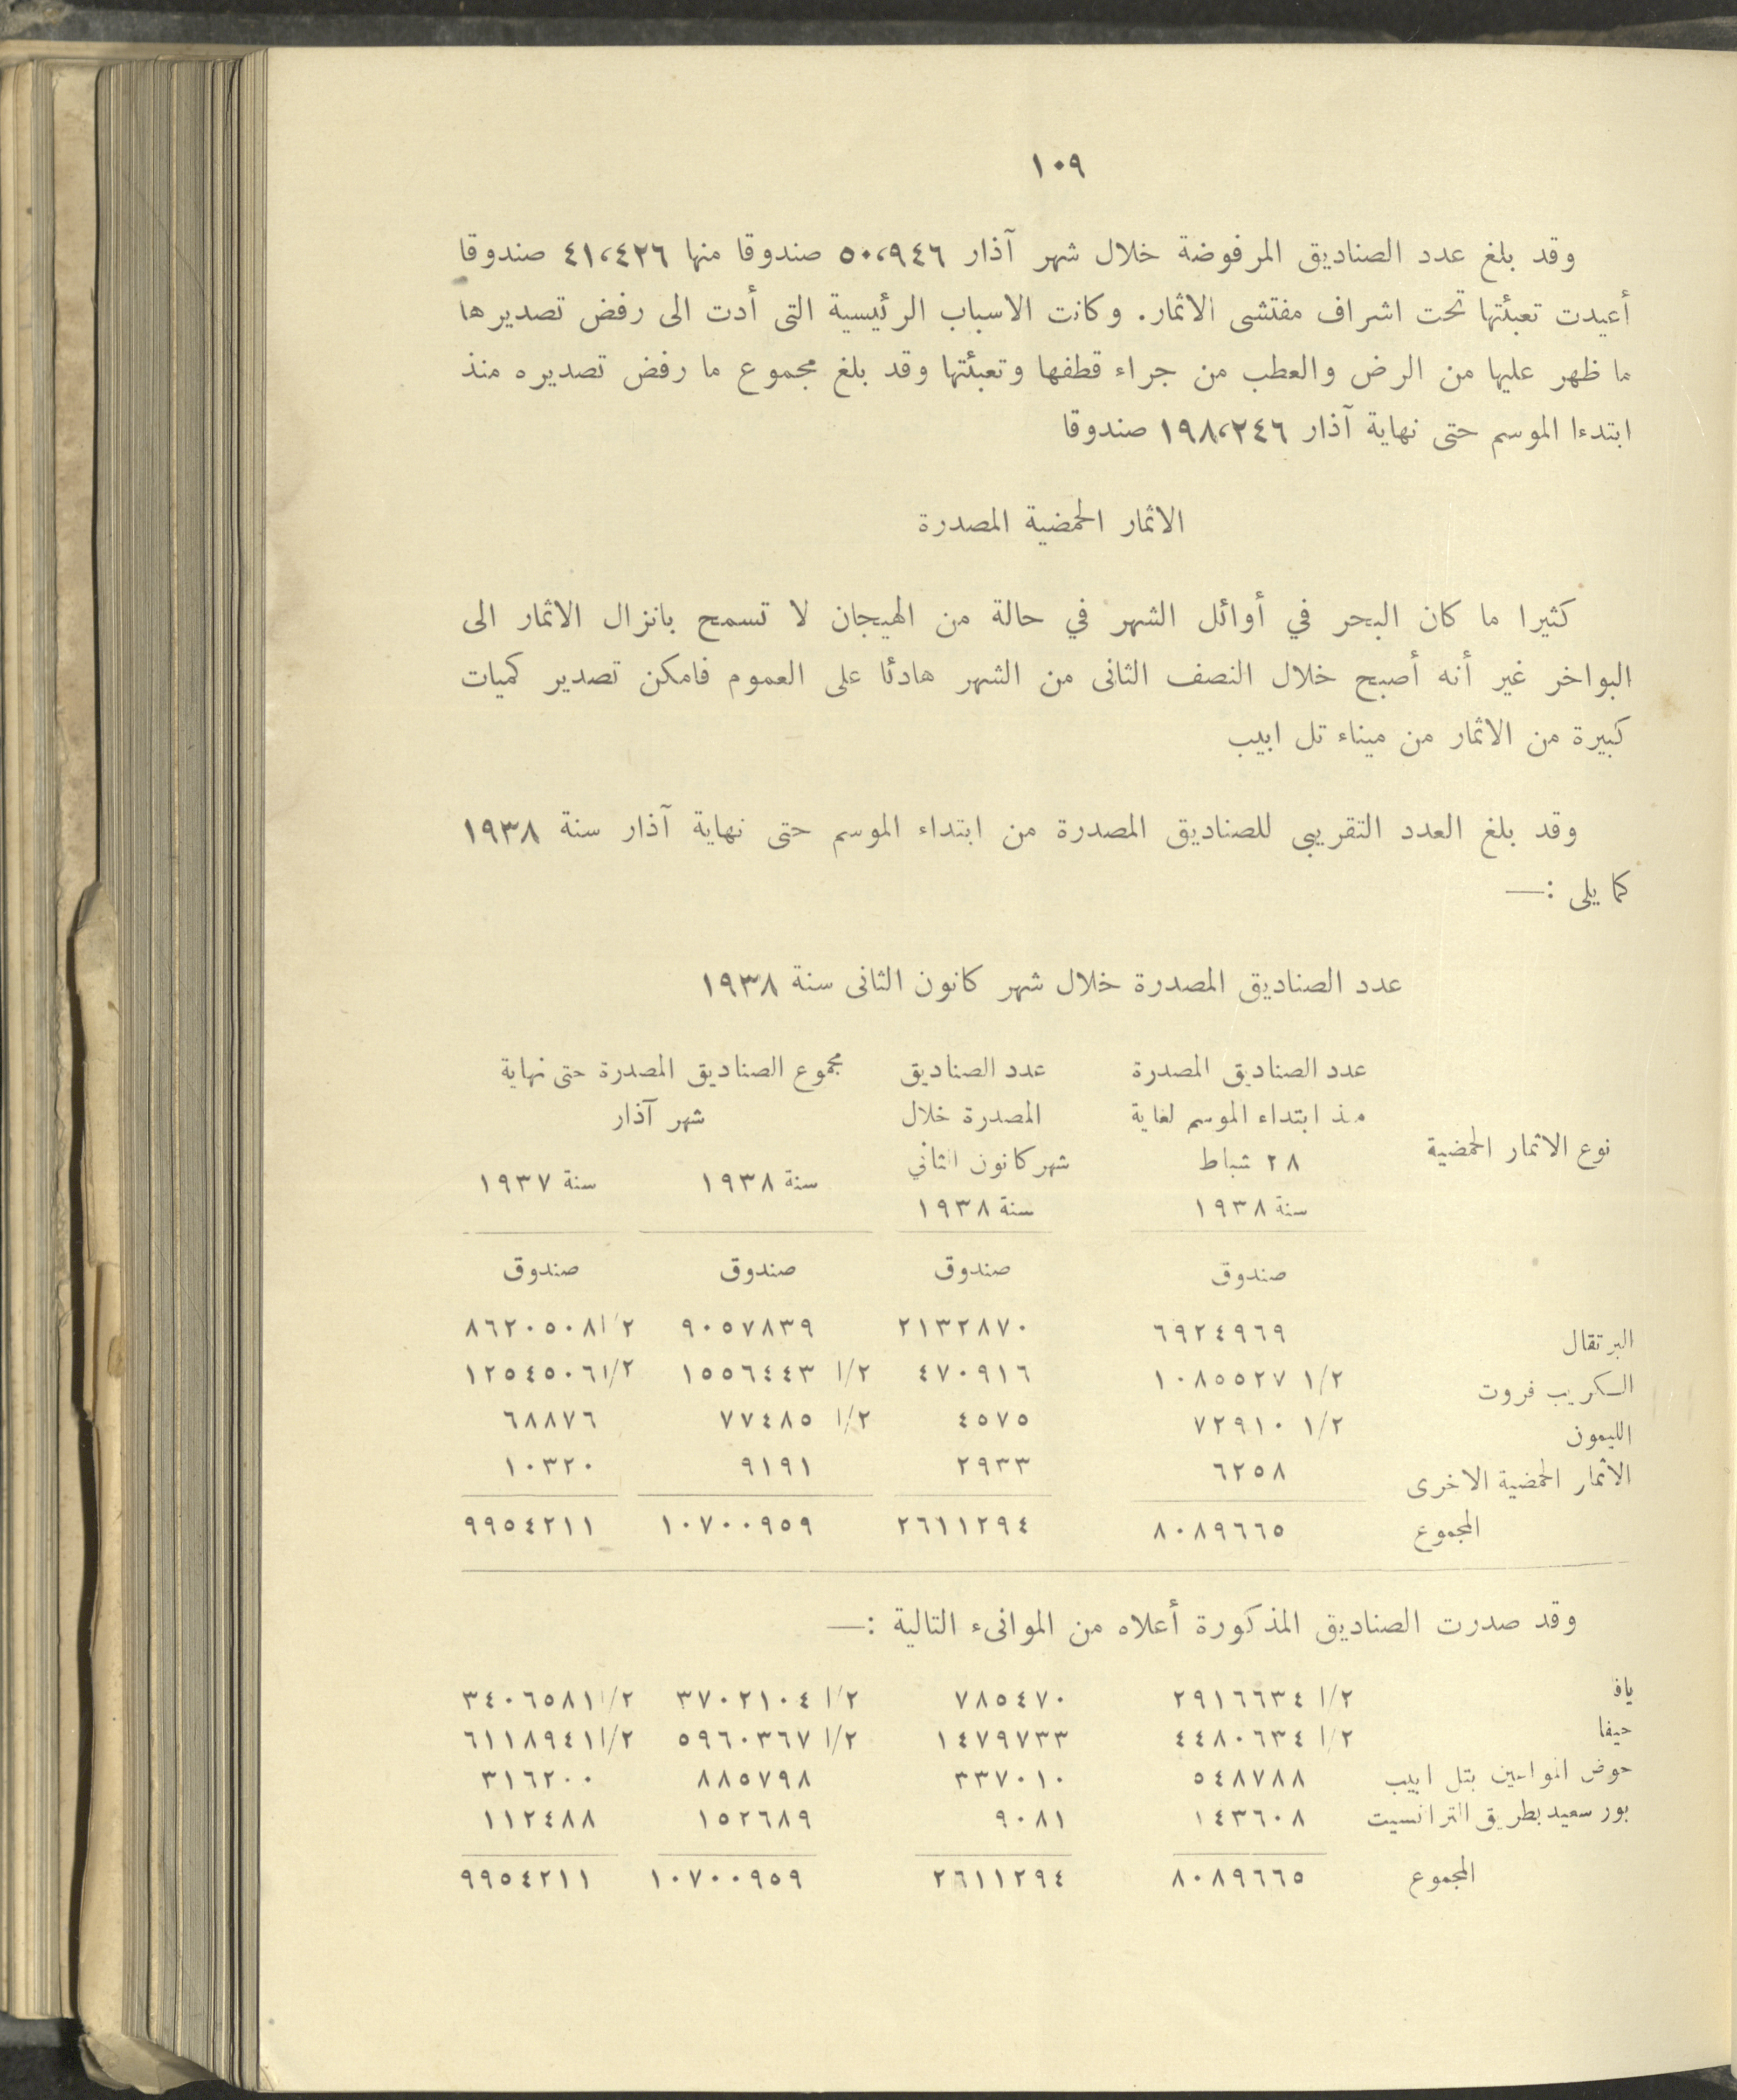 ١٠٩
وقد بلغ عدد الصناديق المرفوضة خلال شهر آذار ٥٠،٩٤٦ صندوقا منها ٤١،٤٢٦ صندوقا
أعيدت تعبئتها تحت اشراف مفتشى الاثمار. وكانت الاسباب الرئيسية التى أدت الى رفض تصديرها
ما ظهر عليها من الرض والعطب من جراء قطفها وتعبئتها وقد بلغ مجموع ما رفض تصديره منذ
ابتدءا الموسم حتى نهاية آذار ١٩٨،٢٤٦ صندوقا
الاثمار الحمضية المصدرة
كثيرا ما كان البحر في أوائل الشهر في حالة من الهيجان لا تسمح بانزال الاثمار الى
البواخر غير أنه أصبح خلال النصف الثانى من الشهر هادئا على العموم فامكن تصدير كميات
كبيرة من الاثمار من ميناء تل ابيب
وقد بلغ العدد التقريبى للصناديق المصدرة من ابتداء الموسم حتى نهاية آذار سنة ١٩٣٨
كما يلى :—
عدد الصناديق المصدرة خلال شهر كانون الثانى سنة ١٩٣٨
عدد الصناديق المصدرة عدد الصناديق مجموع الصناديق المصدرة حتى نهاية
منذ ابتداء الموسم لغاية المصدرة خلال شهر آذار
نوع الاثمار الحمضية ٢٨ شباط شهر كانون الثاني سنة ١٩٣٨ سنة ١٩٣٧
سنة ١٩٣٨ سنة ١٩٣٨
صندوق صندوق صندوق صندوق
البرتقال ٦٩٢٤٩٦٩ ٢١٣٢٨٧٠ ٩٠٥٧٨٣٩ ٨٦٢٠٥٠٨ ١/٢
الكريب فروت ١٠٨٥٥٢٧ ١/٢ ٤٧٠٩١٦ ١٥٥٦٤٤٣ ١/٢ ١٢٥٤٥٠٦ ١/٢
الليمون ٧٢٩١٠ ١/٢ ٤٥٧٥ ٧٧٤٨٥ ١/٢ ٦٨٨٧٦
الاثمار الحمضية الاخرى ٦٢٥٨ ٢٩٣٣ ٩١٩١ ١٠٣٢٠
المجموع ٨٠٨٩٦٦٥ ٢٦١١٢٩٤ ١٠٧٠٠٩٥٩ ٩٩٥٤٢١١
وقد صدرت الصناديق المذكورة أعلاه من الموانىء التالية :—
يافا ٢٩١٦٦٣٤ ١/٢ ٧٨٥٤٧٠ ٣٧٠٢١٠٤ ١/٢ ٣٤٠٦٥٨١ ١/٢
حيفا ٤٤٨٠٦٣٤ ١/٢ ١٤٧٩٧٣٣ ٥٩٦٠٣٦٧ ١/٢ ٦١١٨٩٤١ ١/٢
حوض المواعين بتل ابيب ٥٤٨٧٨٨ ٣٣٧٠١٠ ٨٨٥٧٩٨ ٣١٦٢٠٠
بور سعيد بطريق الترانسيت ١٤٣٦٠٨ ٩٠٨١ ١٥٢٦٨٩ ١١٢٤٨٨
المجموع ٨٠٨٩٦٦٥ ٢٦١١٢٩٤ ١٠٧٠٠٩٥٩ ٩٩٥٤٢١١